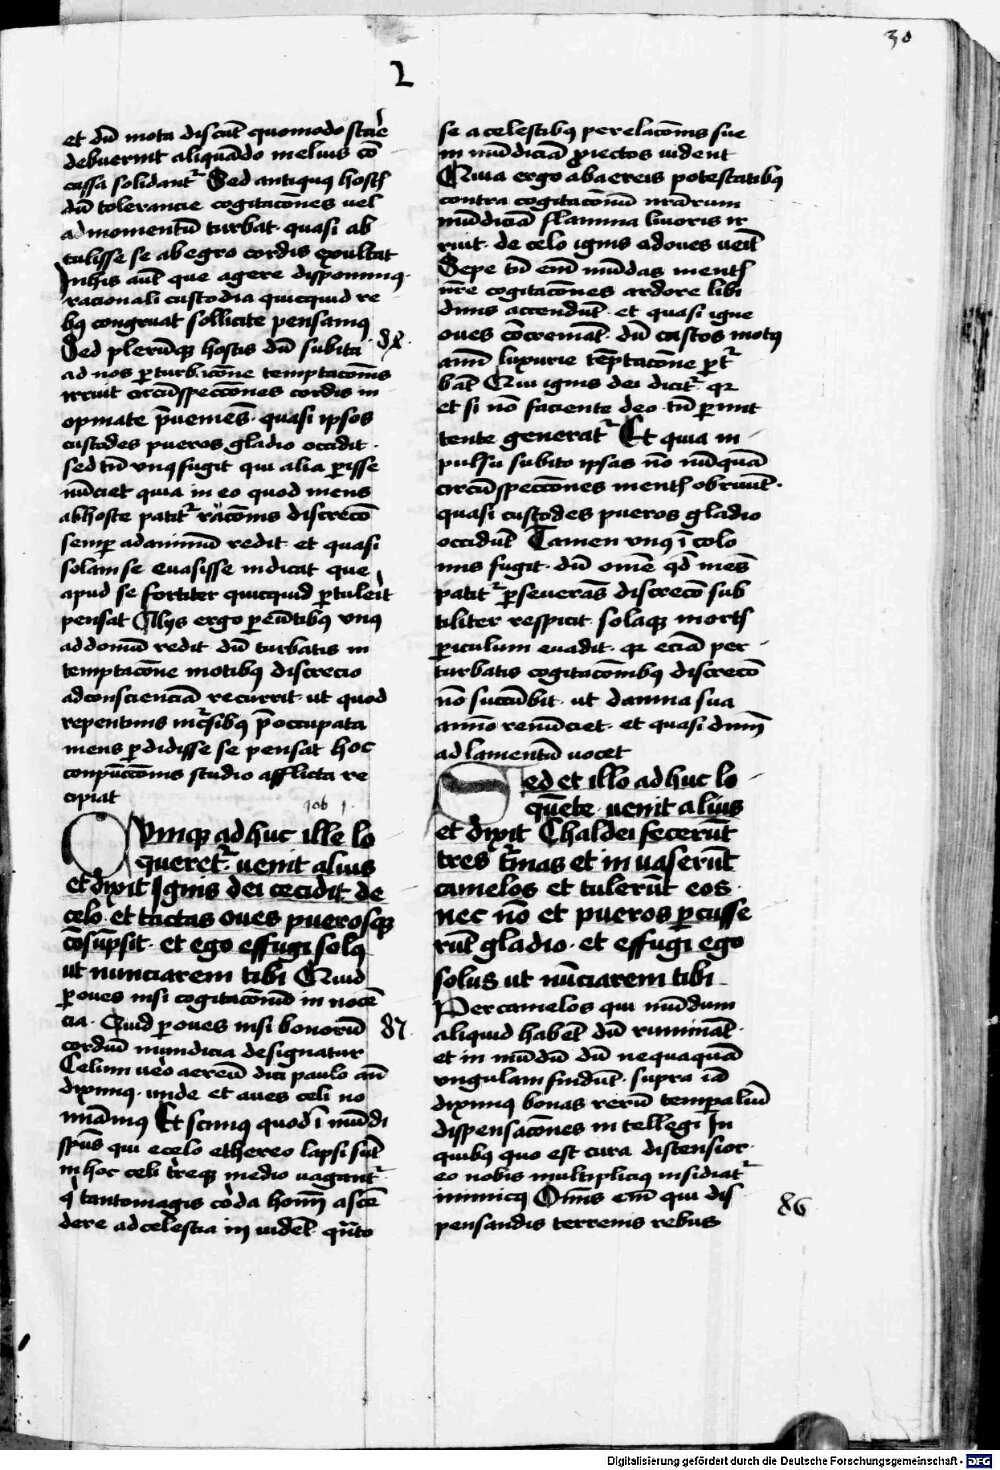 30
2
et dū mota discūt quomodo stare
debuerint aliquādo melius cō
cussa solidantr Sed antiquus hostis
dū tolerancie cogitacōnes uel
ad momentū turbat · quasi ab
tulisse se ab egro cordis exultat
In his aūt que agere disponimus ·
racionali custodia quicquid re
bus congruat sollicite pensamus
Sed plerūque hostis dū subita
ad nos perturbicōne temptacōnis
irruit circūspeccōnes cordis in
opinate preueniēs · quasi ipsos
custodes pueros gladio occidit ·
sed tn̄ unus fugit qui alia perisse
nūciet quia in eo quod mens
ab hoste patitr racōnis discrecō
semper ad animū redit · et quasi
solam se euasisse indicat que
apud se fortiter quicquid pertulerit
pensat Alijs ergo pereūtibus unus
ad domū redit · dū turbatis in
temptacōne motibus discrecio
ad conscienciā recurrit · ut quod
repentinis incursibus preoccupata
mens perdidisse se pensat hoc
conpūccōnis studio afflicta re
cipiat
Job 1.
Cumque adhuc ille lo
queretr · uenit alius
et dixit Ignis dei cecidit de
celo · et tactas oues puerosque
cōsūpsit · et ego effugi solus
ut nunciarem tibi Quid
per oues nisi cogitacōnū innocē
cia · Quid per oues nisi bonorū
87
cordiū mundicia designatur
Celum uero aereū dici paulo ante
diximus · unde et aues celi no
minamus Et scimus quod īmūdi
spūs qui e celo ethereo lapsi sūt
in hoc celi terreque medio uagantr
qui tantomagis corda hominū ascē
dere ad celestia inuidēt · quāto
se a celestibus per elacōnis sue
inmūdiciā proiectos uident
Quia ergo ab aereis potestatibus
contra cogitacōnū nrārum
mūdiciā flamma liuoris ir
ruit · de celo ignis ad oues ueīt
Sepe tn̄ enī mūdas mentis
nr̄e cogitacōnes ardore libi
dinis accendūt · et quasi igne
oues cōcremāt · dū castos motus
animi luxurie tēptacōne pertur
bāt Qui ignis dei dicitr quia
et si nō faciente deo · tn̄ permit
tente generatr Et quia in
pulsu subito ipsas nō nūquā
circūspeccōnes mentis obruūt ·
quasi custodes pueros gladio
occidūt Tamen unus īcolo
mis fugit · dū omē qd̄ mēs
patitr perseuerās discrecō sub
tiliter respicit · solaque mortis
periculum euadit · quia eciā per
turbatis cogitacōnibus discrecō
nō succūbit · ut damna sua
animo renūciet · et quasi dominū
ad lamentū uocet
Sed et illo adhuc lo
quente · uenit alius
et dixit Chaldei fecerūt
tres turmas et inuaserūt
camelos et tulerūt eos ·
nec nō et pueros percusse
rūt gladio · et effugi ego
solus ut nūciarem tibi
Per camelos qui mūdum
aliquid habēt dū rumināt ·
et inmūdū dū nequaquā
ungulam findūt · supra iā
diximus bonas rerū temporaliū
dispensacōnes intellegi In
quibus quo est cura distensior ·
eo nobis multiplicius insidiatr
inimicus Omnis enī qui dis
pensandis terrenis rebus
86
Digitalisierung gefördert durch die Deutsche Forschungsgemeinschaft - DFG